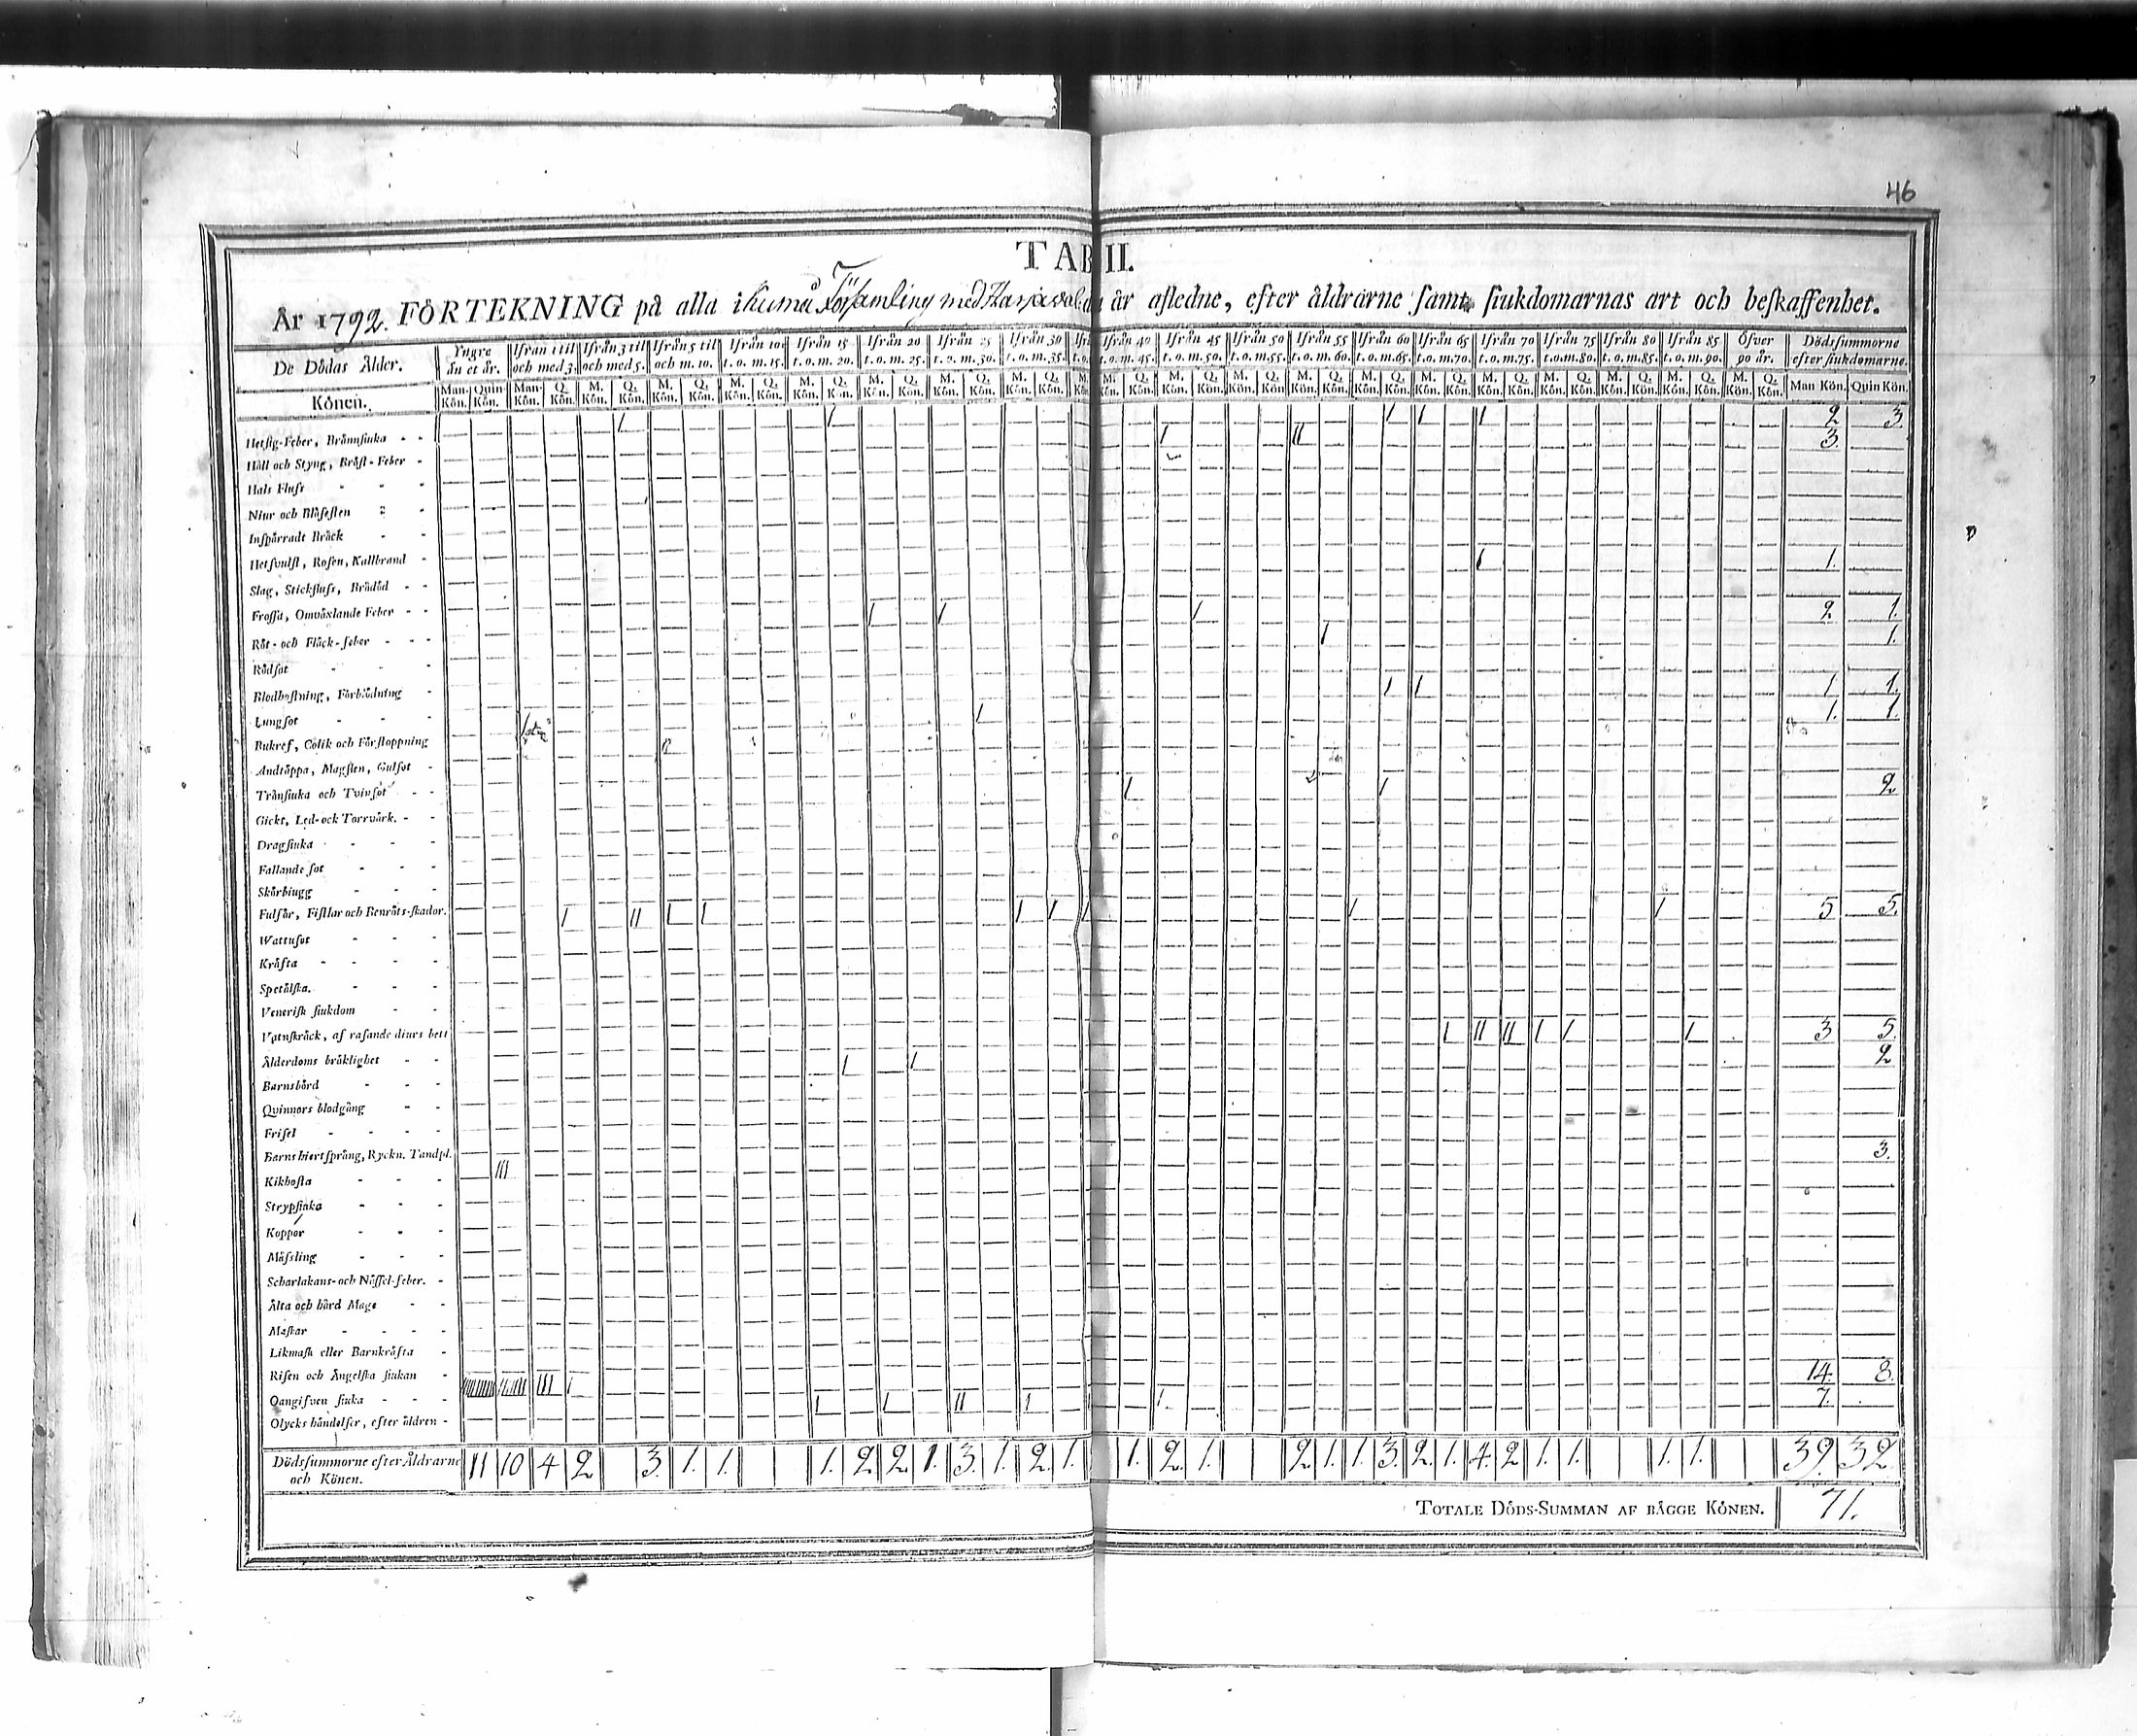 46
TAB II.
År 1792. FÖRTEKNING på alla i Kumå Församling med Harjavalda år afledne, efter åldrarne samt siukdomarnas art och beskaffenhet.
De Dödas Ålder. Yngre än et år. Ifrån 1 til och med 3. Ifrån 3 til och med 5. Ifrån 5 til och m. 10. Ifrån 10 t.o.m. 15. Ifrån 15 t.o.m. 20. Ifrån 20 t.o.m. 25. Ifrån 25 t.o.m. 30. Ifrån 30 t.o.m. 35. Ifrån 40 t.o.m. 45. Ifrån 45 t.o.m. 50. Ifrån 50 t.o.m. 55. Ifrån 55 t.o.m. 60. Ifrån 60 t.o.m. 65. Ifrån 65 t.o.m. 70. Ifrån 70 t.o.m. 75. Ifrån 75 t.o.m. 80. Ifrån 80 t.o.m. 85. Ifrån 85 t.o.m. 90. Öfver 90 år. Dödssummorne efter siukdomarne.
Könen. Man. Kön. Quin. Kön. Man. Kön. Q. Kön. M. Kön. Q. Kön. M. Kön. Q. Kön. M. Kön. Q. Kön. M. Kön. Q. Kön. M. Kön. Q. Kön. M. Kön. Q. Kön. M. Kön. Q. Kön. M. Kön. Q. Kön. M. Kön. Q. Kön. M. Kön. Q. Kön. M. Kön. Q. Kön. M. Kön. Q. Kön. M. Kön. Q. Kön. M. Kön. Q. Kön. M. Kön. Q. Kön. M. Kön. Q. Kön. M. Kön. Q. Kön. M. Kön. Q. Kön. Man Kön. Quin Kön.
Hetsig-Feber, Brännsiuka 1 1 1 1 1 2 3
Håll och Styng, Bröst-Feber 1 II 3.
Hals Fluss
Niur och Blåsesten
Inspärradt Bråck
Hetsvulst, Rosen, Kallbrand
Slag, Stickfluss, Brådöd 1 1.
Frossa, Omväxlande Feber
Röt- och Fläck-feber 1 1 1 2 1.
Rödsot 1 1.
Blodhostning, Förblödning
Lungsot 1 1 1 1.
Bukref, Colik och Förstoppning 1 1 1. 1.
Andtäppa, Magsten, Gulsot
Trånsiuka och Tvinsot
Gickt, Led- och Torrvärk. 1 1 2
Dragsiuka
Fallande sot
Skörbiugg
Fulsår, Fistlar och Benröts-skador.
Wattusot 1 II 1 1 1 1 1 1 1 5 5.
Kräfta
Spetälska.
Venerisk siukdom
Vatnskräck, af rasande diurs bett
Ålderdoms bräklighet 1 II II 1 1 1 3 5.
Barnsbörd 1 1 2
Quinnors blodgång
Frisel
Barns hiertsprång, Ryckn. Tandpl.
Kikhosta III 3.
Strypsiuka
Koppor
Måssling
Scharlakans- och Nässel-feber.
Älta och hård Mage
Maskar
Likmask eller Barnkräfta
Risen och Ängelska siukan
Oangifven siuka III 1 14. 8.
Olycks händelser, efter åldren 1 1 II 1 1 7.
Dödssummorne efter Åldrarne och Könen. 11 10 4 2 3. 1. 1. 1. 2 2 1. 3. 1. 2. 1. 1. 2. 1. 2. 1. 1. 3. 2. 1. 4. 2 1. 1. 1. 1. 39. 32.
TOTALE DÖDS-SUMMAN AF BÅGGE KÖNEN. 71.